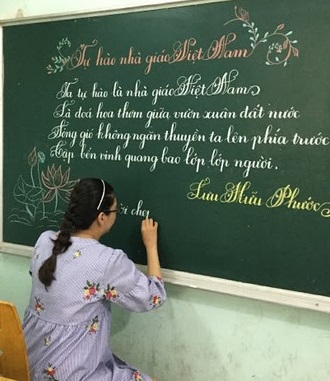 Tự hào nhà giáo Việt Nam
Ta tự hào là nhà giáo Việt Nam
Là đoá hoa thơm giữa vườn xuân đất nước
Sóng gió không ngăn thuyền ta lên phía trước
Cập bến vinh quang bao lớp lớp người.
Lưu Hữu Phước